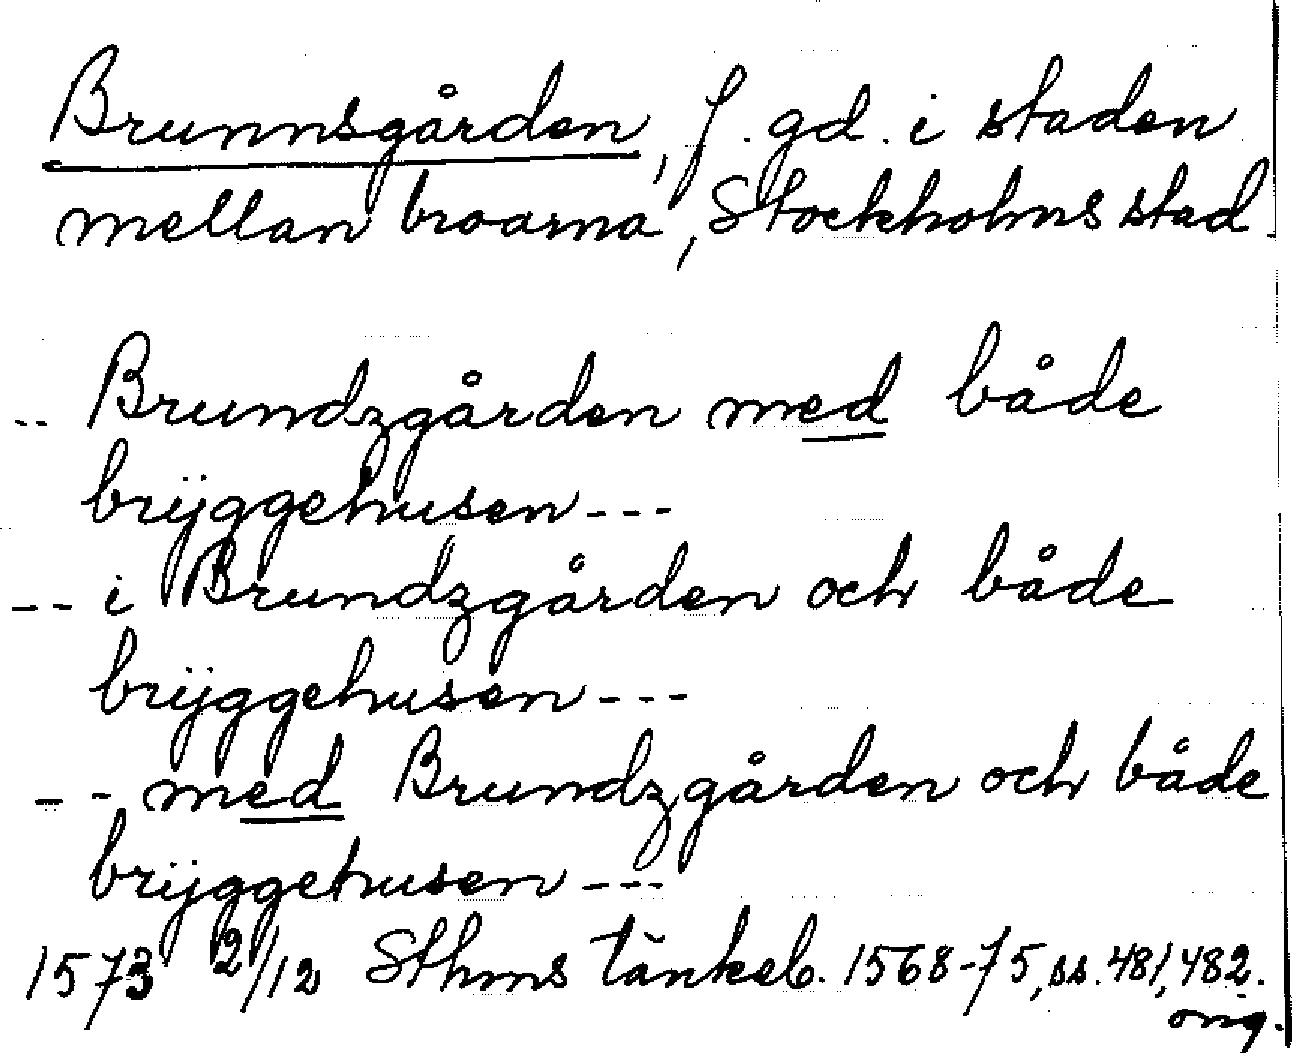 Brunnsgården, f. gd. i staden
mellan broarna, Stockholms stad.
-- Brundzgården med både
brÿggehusen ---
-- i Brundzgården och både
brÿggehusen ---
-- med Brundzgården och både
brÿggehusen ---
1573 2/12 Sthms tänkeb. 1568-75, ss. 481, 482.
orig.